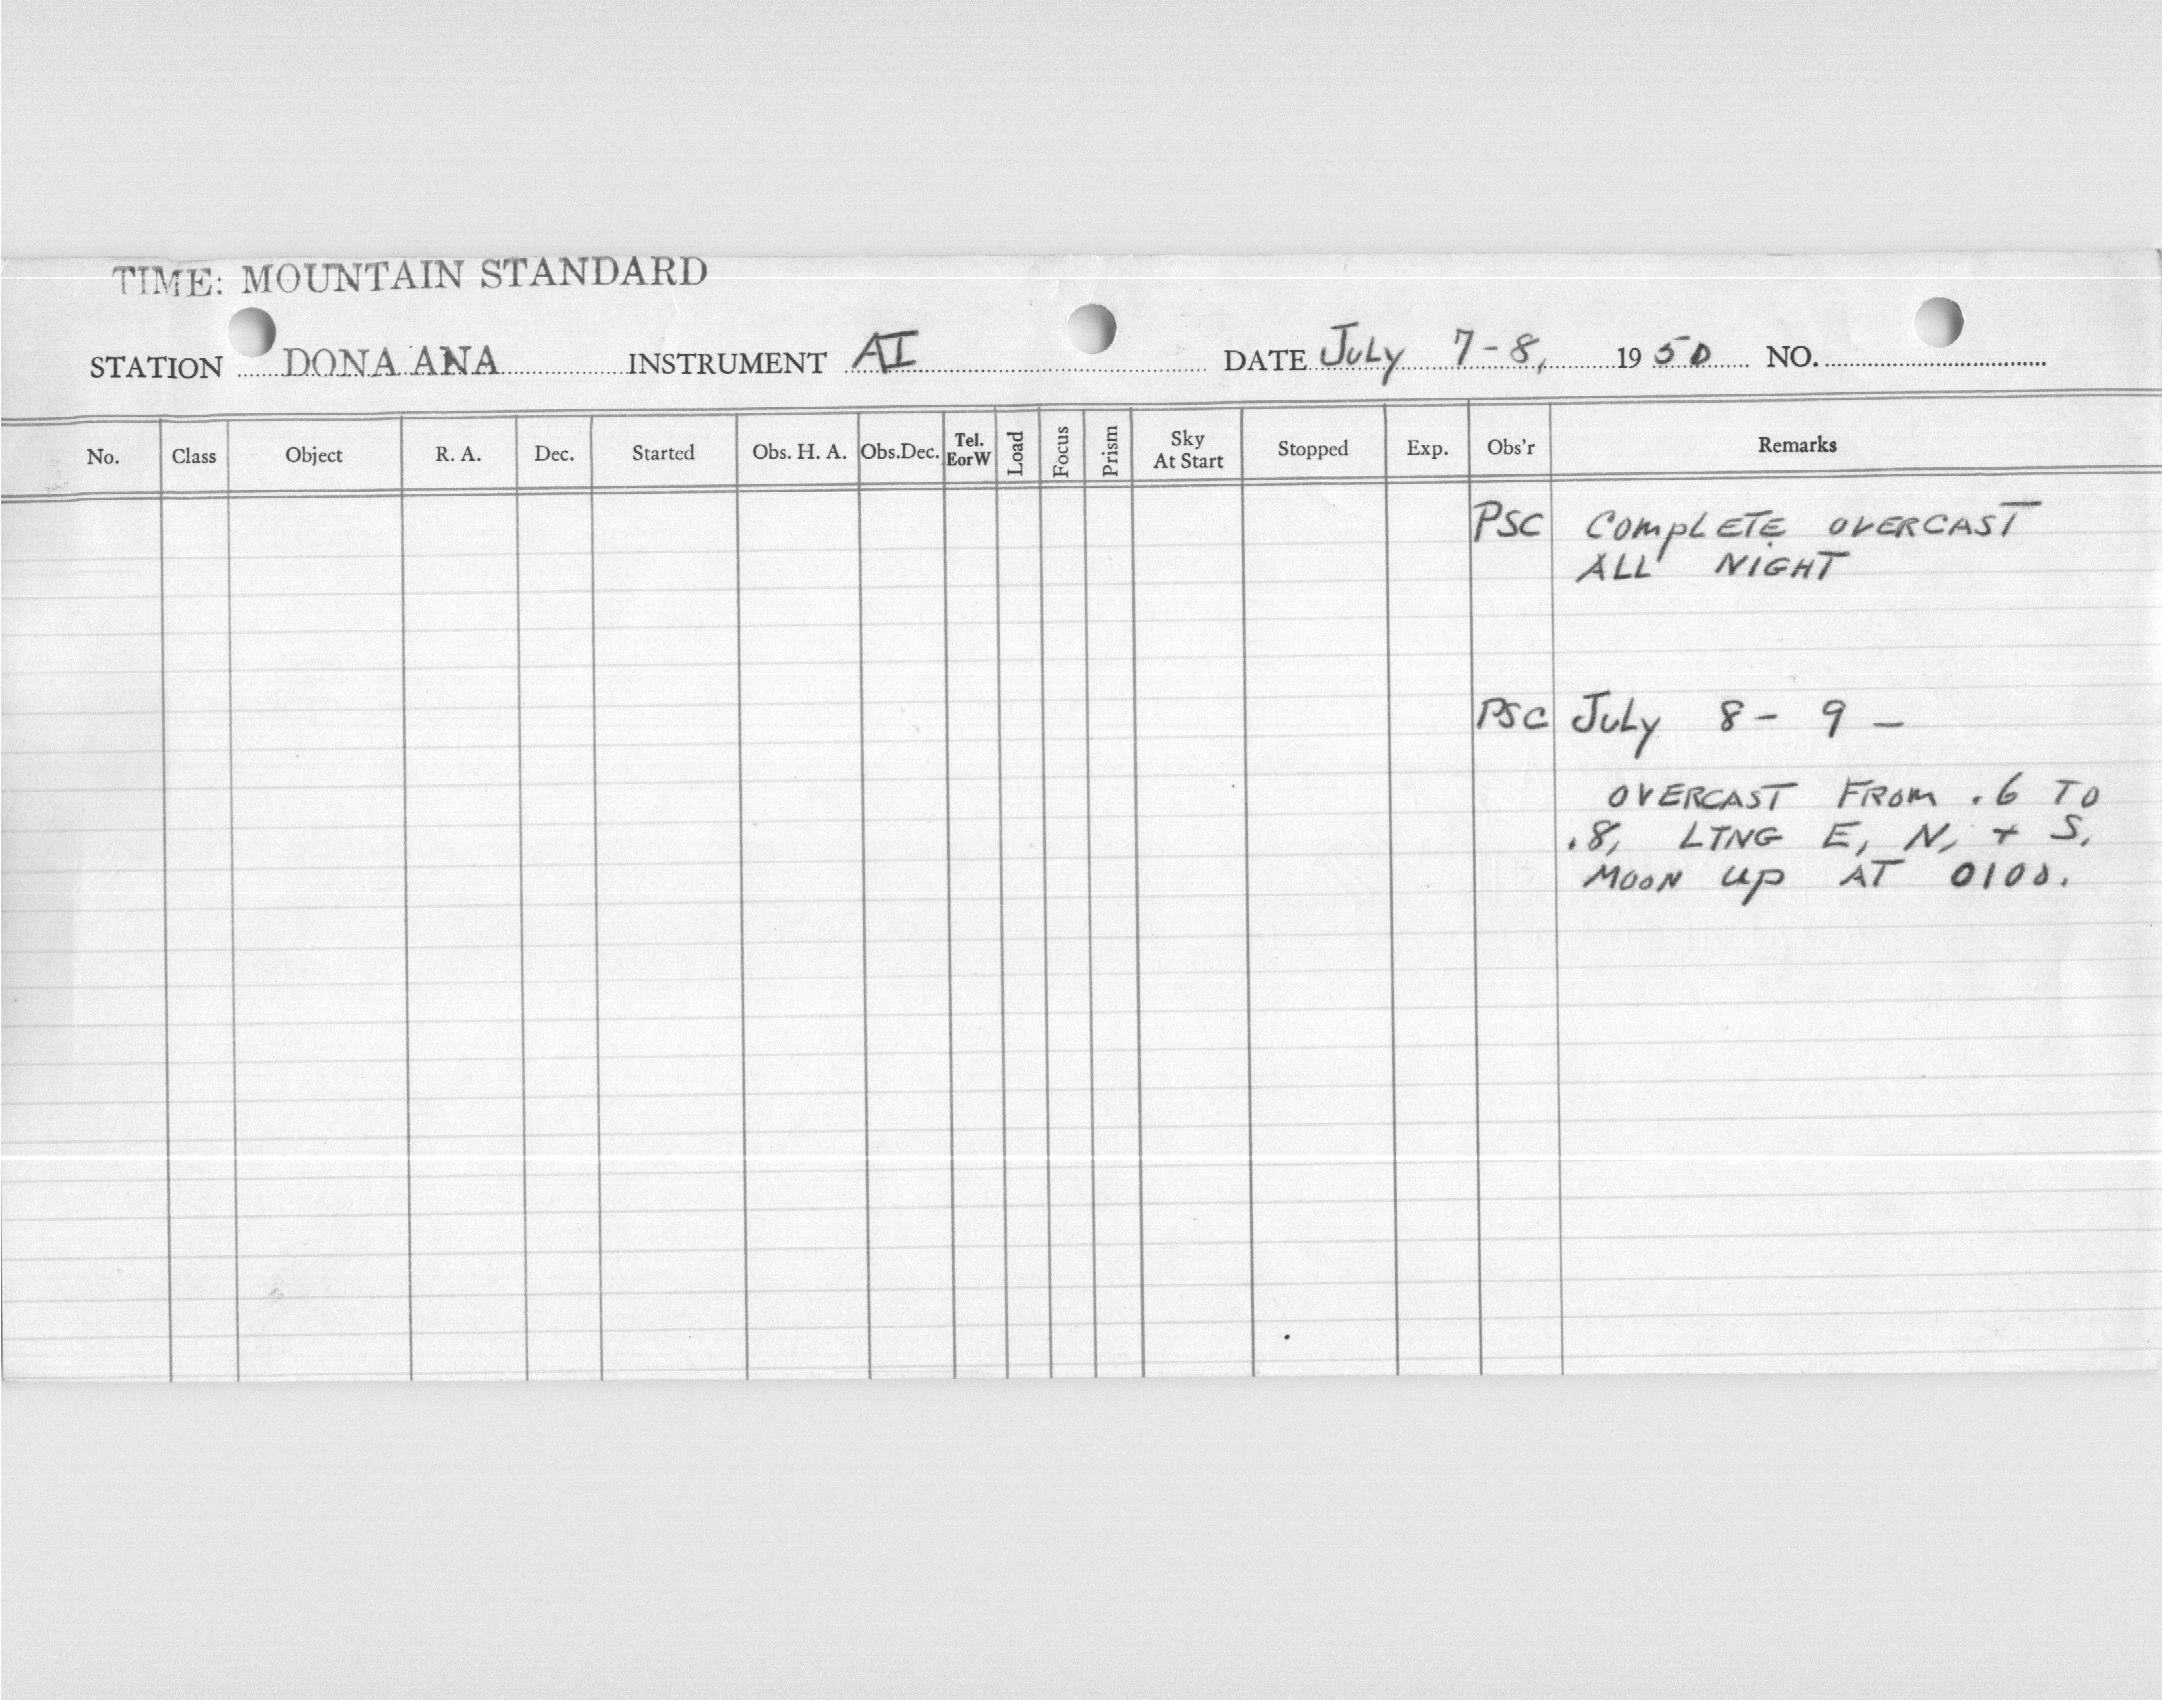 TIME: MOUNTAIN STANDARD
STATION DONA ANA INSTRUMENT AI DATE July 7-8, 1950 NO.
No. Class Object R. A. Dec. Started Obs. H. A. Obs.Dec. Tel. EorW Load Focus Prism Sky At Start Stopped Exp. Obs'r Remarks
PSC COMPLETE OVERCAST
ALL NIGHT
PSC July 8 - 9 —
OVERCAST FROM .6 TO
.8, LTNG E, N, + S.
MOON UP AT 0100.